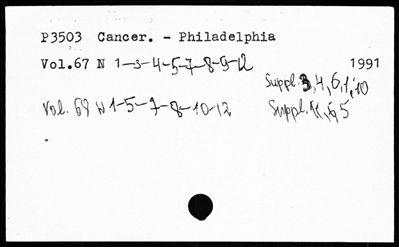 P3503 Cancer. - Philadelphia
Vol.67 N 1-3-4-5-7-8-9-12 1991
Suppl. 3,4,6,1,10
Vol. 69 N 1-5-7-8-10-12 Suppl. 4,6,5